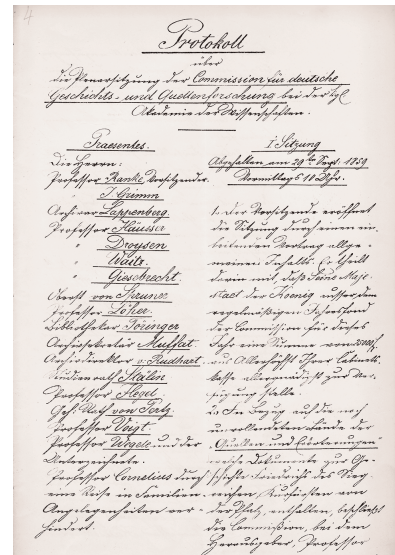 4
Protokoll
über
die Plenarsitzung der Commission für deutsche
Geschichts- und Quellenforschung bei der kgl
Akademie der Wissenschaften.
Praesentes.
Die Herrn:
Professor Ranke Vorsitzender
" J. Grimm
Archivar Lappenberg
Professor Häusser
" Droysen
" Waitz
" Giesebrecht
Oberst von Spruner
Professor Löher
Bibliothekar Föringer
Archivsekretär Muffat
Archivdirektor v. Rudhart
Studienrath Stälin
Professor Hegel
Geh Rath von Pertz
Professor Voigt
Professor Wegele und der
Unterzeichnete.
Professor Cornelius durch
eine Reise in Familien
Angelegenheiten ver-
hindert.
I Sitzung
Abgehalten am 29ten Sept. 1859
Vormittags 10 Uhr.
1. Der Vorsitzende eröffnet
die Sitzung durch einen ein-
leitenden Vortrag allge-
meinen Inhalts. Er theilt
darin mit, daß Seine Maje-
staet der Koenig ausser dem
regelmäßigen Jahresfond
der Commission für dieses
Jahr eine Summe von
aus Allerhöchst Ihrer Cabinets-
kasse allergnädigst zur Ver-
fügung stelle.
2. In Bezug auf die noch
unvollendeten Bände der
Quellen und Eröterungen
welche Dokumente zur Ge-
schichte Friedrichs des Sieg-
reichen, Kurfürsten von
der Pfalz, enthalten, beschließt
die Commission, bei dem
Herausgeber, Professor